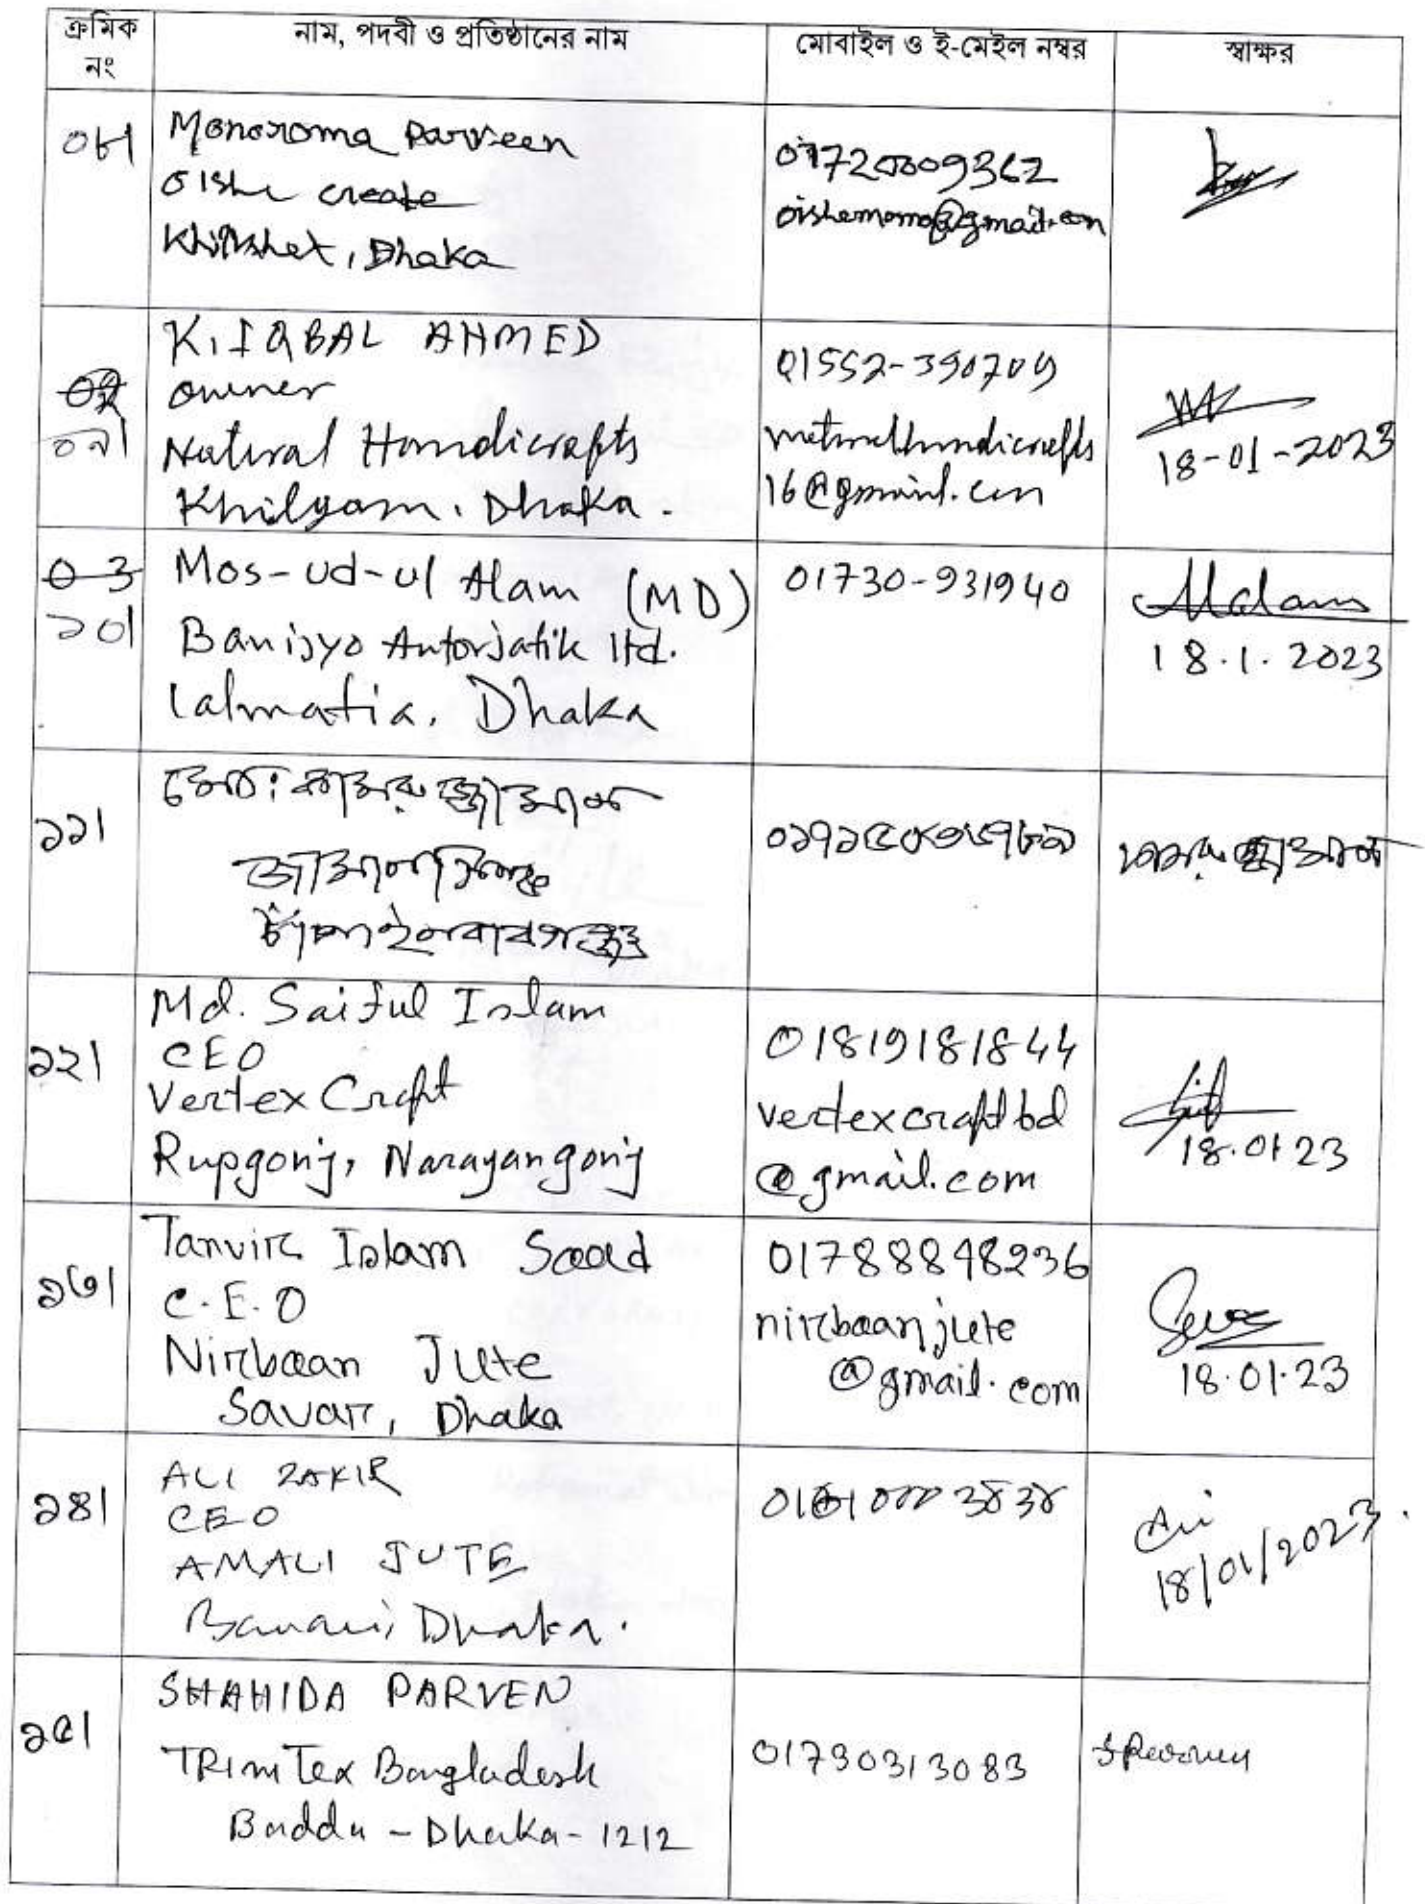 ক্রমিক নং
নাম, পদবী ও প্রতিষ্ঠানের নাম
মোবাইল ও ই-মেইল নম্বর
স্বাক্ষর
০৮।
Monoroma Parveen
Oishe create
Khilkhet, Dhaka
01720009362
oishemomo@gmail.com
০৯।
K. IQBAL AHMED
owner
Natural Handicrafts
Khilgaon. Dhaka.
01552-390709
naturalhandicrafts
16@gmail.com
18-01-2023
03
১০।
Mos-ud-ul Alam (MD)
Banijyo Antorjatik ltd.
lalmatia. Dhaka
01730-931940
Malam
18.1.2023
১১।
মোঃ কামরুজ্জামান
চাঁপাইনবাবগঞ্জ
কামরুজ্জামান
১২।
Md. Saiful Islam
CEO
Vertex Craft
Rupgonj, Narayangonj
01819181844
vertexcraftbd
@gmail.com
18.01.23
১৩।
Tanvir Islam Saad
C.E.O
Nirbaan Jute
Savar, Dhaka
01788898236
nirbaanjute
@gmail.com
18.01.23
১৪।
ALI ZAKIR
CEO
AMALI JUTE
Banani, Dhaka.
Ali
18/01/2023.
১৫।
SHAHIDA PARVEN
TRimTex Bangladesh
Badda - Dhaka - 1212
01730313083